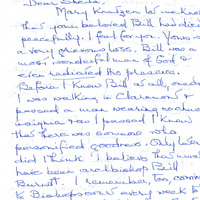 Dear Sheila
Mary Kruitzen let me know
that your beloved Bill had died
peacefully. I feel for you. Yours is
a very grievous loss. Bill was a
most wonderful man of God &
even radiated the presence.
Before I knew Bill at all, once
I was walking in Claremont &
passed a man wearing no church
insignia & as I passed I knew
that there was someone who
personified goodness. Only later
did I think. I believe that must
have been archbishop Bill
Burnett. I remember, too, coming
to Bishopscourt every week to